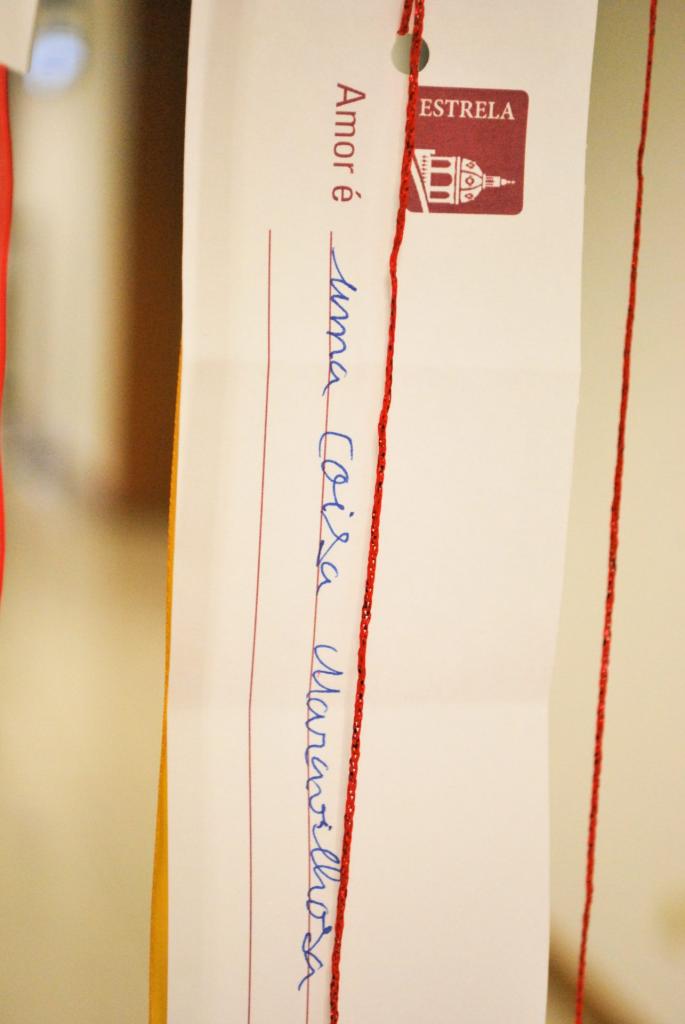 ESTRELA
Amor é uma Coisa Maravilhosa